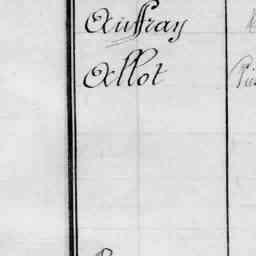 Auffray
Allot